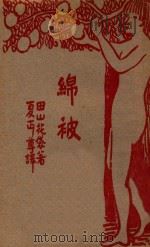 綿被
田山花袋著
夏丏尊譯